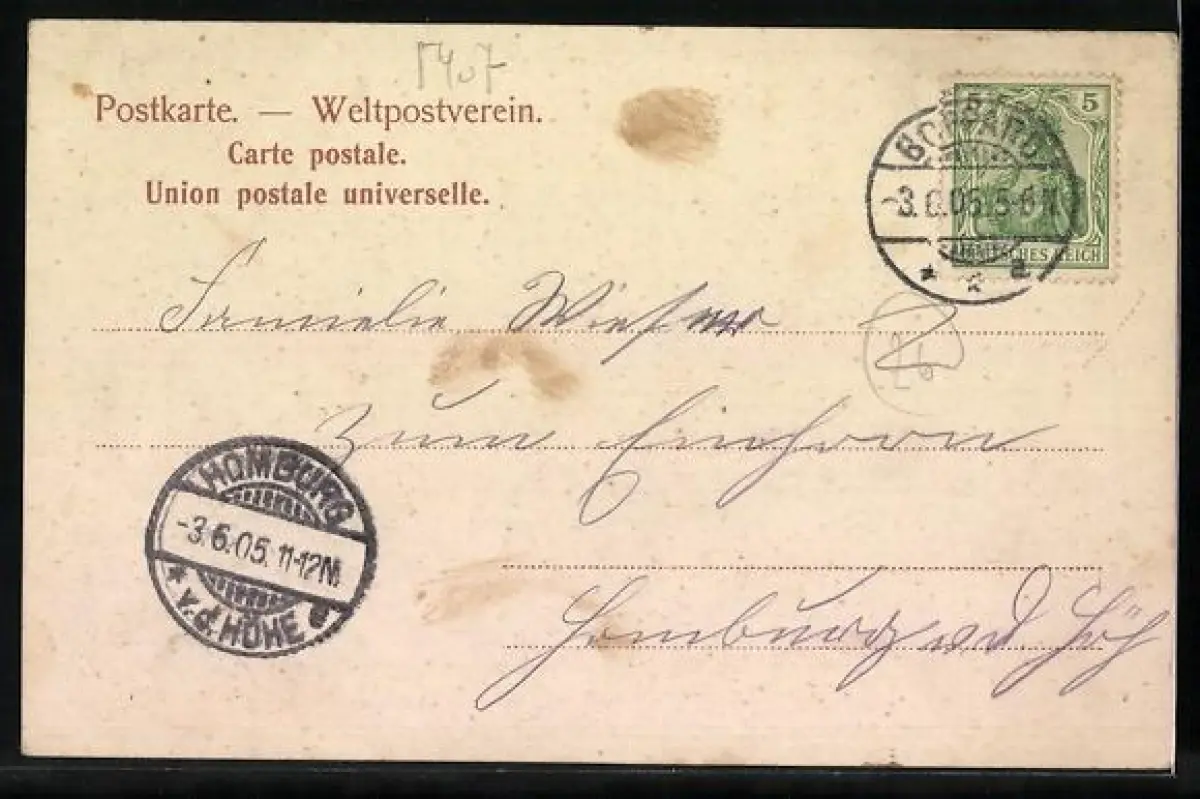 5407
Postkarte. — Weltpostverein.
Carte postale.
Union postale universelle.
5 5
BOPPARD
-3.6.05.5-6N
* * a
DEUTSCHES REICH
Familie Wieser
26
zum Einhorn
HOMBURG
-3.6.05.11-12N
* v.d. HÖHE a
Homburg v d Höh